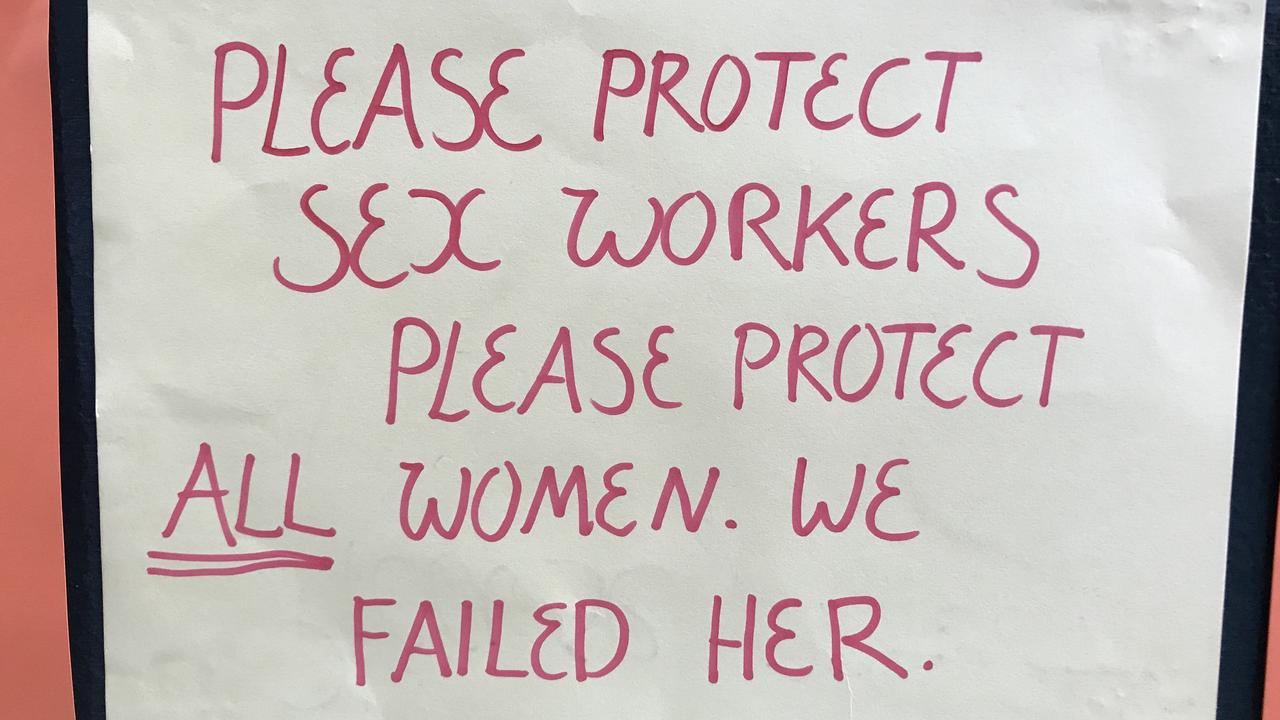 PLEASE PROTECT
SEX WORKERS
PLEASE PROTECT
ALL WOMEN. WE
FAILED HER.